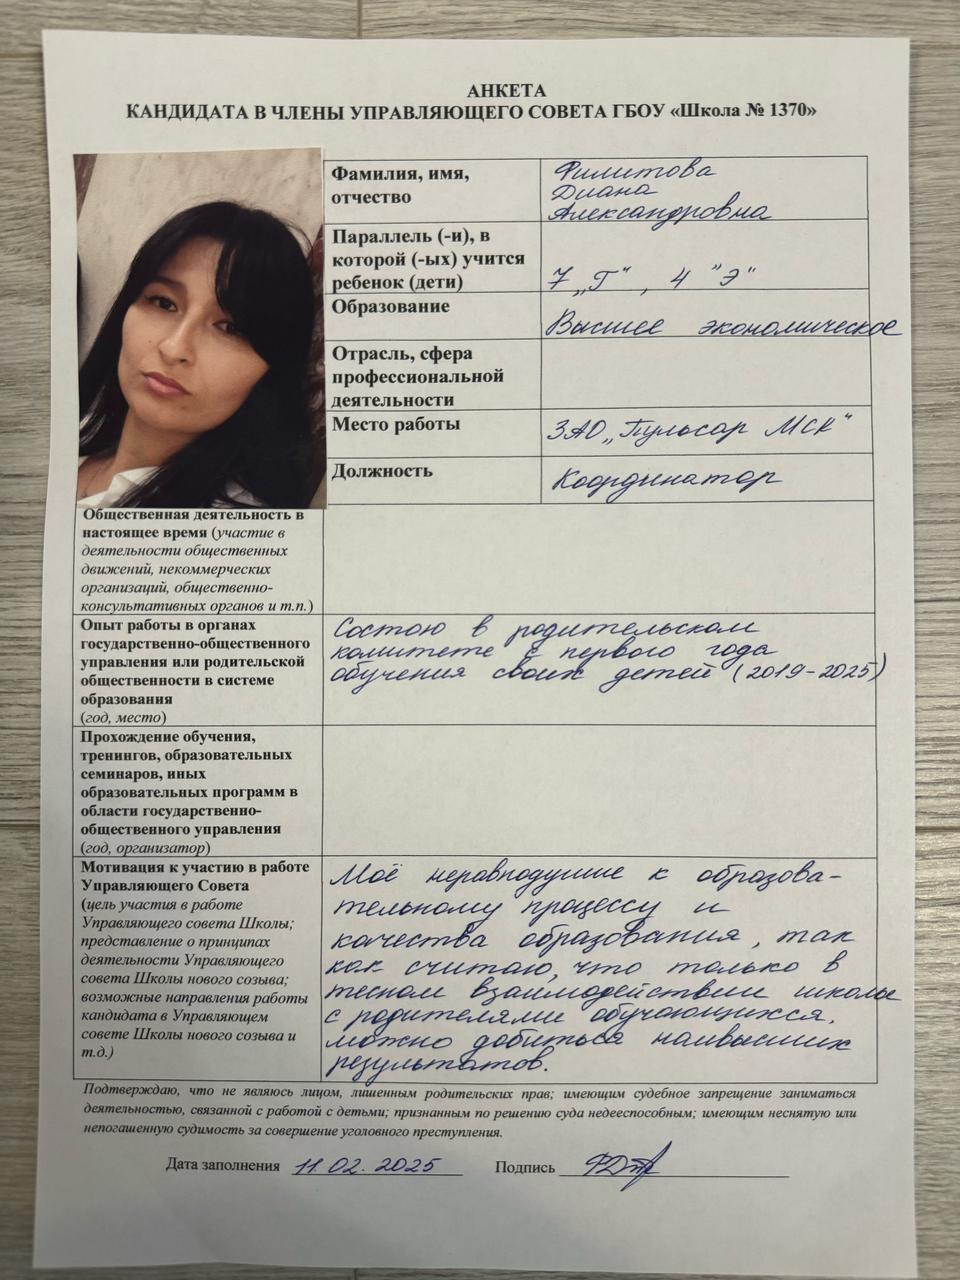 АНКЕТА
КАНДИДАТА В ЧЛЕНЫ УПРАВЛЯЮЩЕГО СОВЕТА ГБОУ «Школа № 1370»
Фамилия, имя,
отчество
Филитова
Диана
Александровна
Параллель (-и), в
которой (-ых) учится
ребенок (дети)
7 „Г“ , 4 ”Э”
Образование
Высшее экономическое
Отрасль, сфера
профессиональной
деятельности
Место работы
ЗАО „Пульсар Мск“
Должность
Координатор
Общественная деятельность в
настоящее время (участие в
деятельности общественных
движений, некоммерческих
организаций, общественно-
консультативных органов и т.п.)
Опыт работы в органах
государственно-общественного
управления или родительской
общественности в системе
образования
(год, место)
Состою в родительском
комитете с первого года
обучения своих детей (2019-2025)
Прохождение обучения,
тренингов, образовательных
семинаров, иных
образовательных программ в
области государственно-
общественного управления
(год, организатор)
Мотивация к участию в работе
Управляющего Совета
(цель участия в работе
Управляющего совета Школы;
представление о принципах
деятельности Управляющего
совета Школы нового созыва;
возможные направления работы
кандидата в Управляющем
совете Школы нового созыва и
т.д.)
Моё неравнодушие к образова-
тельному процессу и
качества образования, так
как считаю, что только в
тесном взаимодействии школы
с родителями обучающихся.
можно добиться наивысших
результатов.
Подтверждаю, что не являюсь лицом, лишенным родительских прав; имеющим судебное запрещение заниматься
деятельностью, связанной с работой с детьми; признанным по решению суда недееспособным; имеющим неснятую или
непогашенную судимость за совершение уголовного преступления.
Дата заполнения 11.02.2025 Подпись